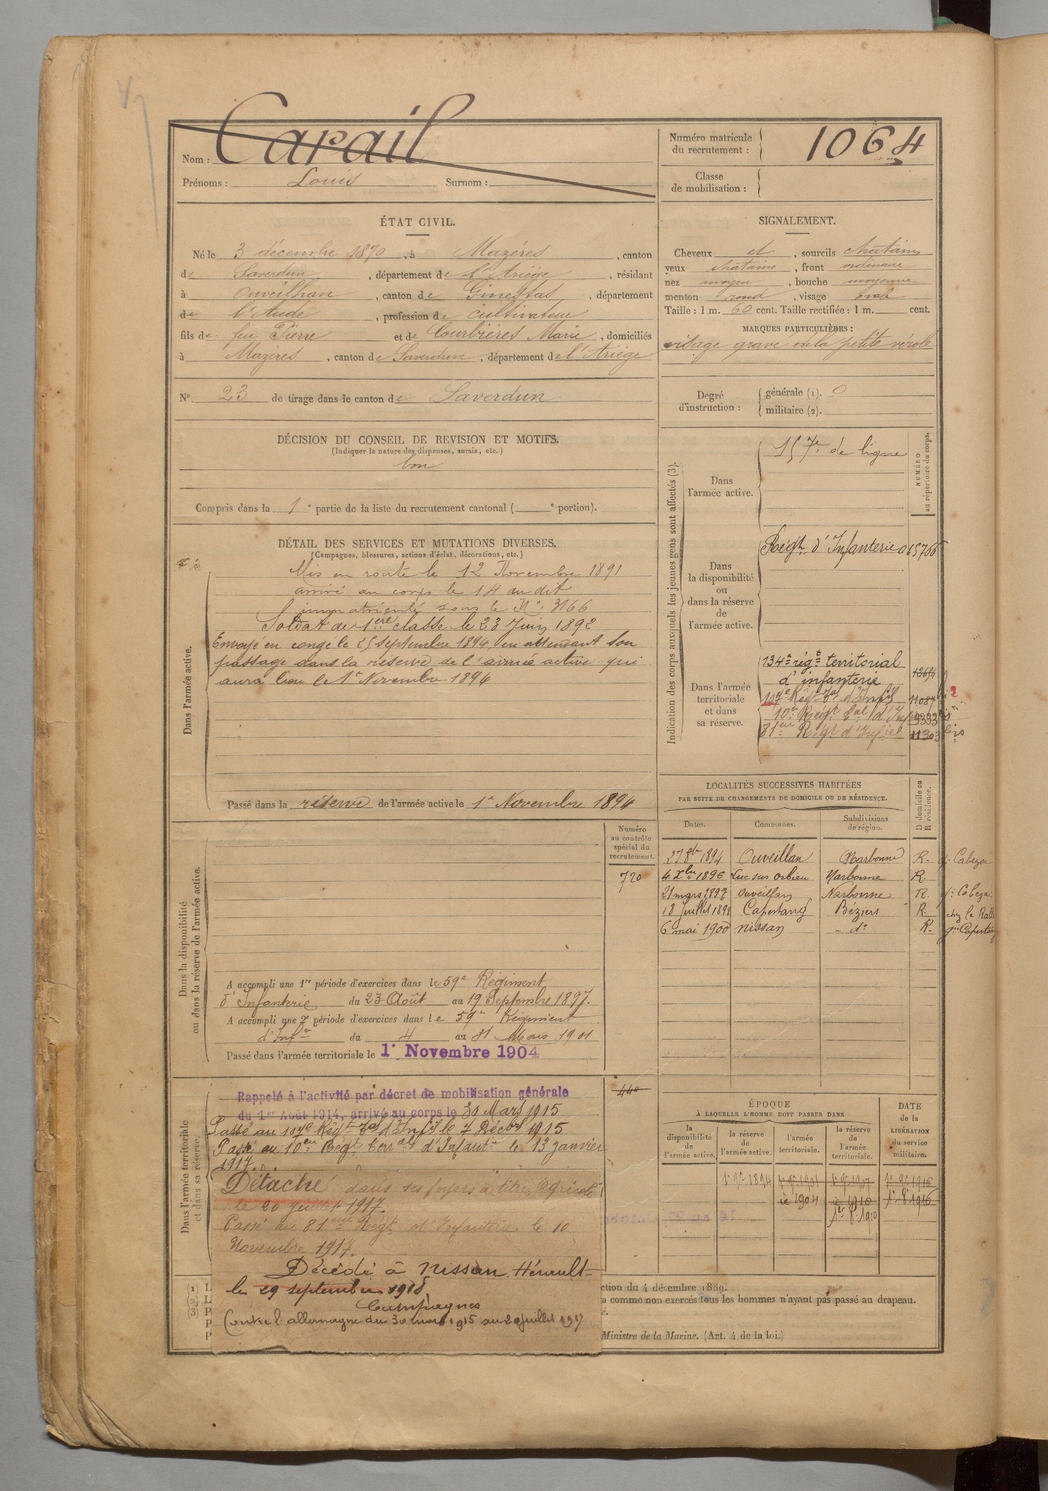 Nom : Carail
Prénoms : Louis Surnom :
Numéro matricule
du recrutement : 1064
Classe
de mobilisation :
ÉTAT CIVIL.
Né le 3 décembre 1870, à Mazères, canton
de Saverdun, département de l'Ariège, résidant
à Ouveilhan, canton de Ginestas, département
de l'Aude, profession de cultivateur
fils de feu Pierre et de Courbières Marie, domiciliés
à Mazères, canton de Saverdun, département de l'Ariège
N° 23 de tirage dans le canton de Saverdun
SIGNALEMENT.
Cheveux et, sourcils chatains
yeux chatains, front ordinaire
nez moyen, bouche moyenne
menton rond, visage ovale
Taille : 1 m. 60 cent. Taille rectifiée : 1 m. cent.
MARQUES PARTICULIÈRES :
visage gravé de la petite vérole
Degré
d'instruction :
générale (1). 0
militaire (2).
DÉCISION DU CONSEIL DE REVISION ET MOTIFS.
(Indiquer la nature des dispenses, sursis, etc.)
bon
Compris dans la 1e partie de la liste du recrutement cantonal ( e portion).
DÉTAIL DES SERVICES ET MUTATIONS DIVERSES.
(Campagnes, blessures, actions d'éclat, décorations, etc.)
Dans l'armée active.
Mis en route le 12 Novembre 1891
arrivé au corps le 14 au dit
immatriculé sous le N° 3166
Soldat de 1ère classe le 23 Juin 1892
Envoyé en congé le 25 septembre 1894, en attendant son
passage dans la réserve de l'armée active qui
aura lieu le 1er Novembre 1894
Passé dans la réserve de l'armée active le 1er Novembre 1894
Indication des corps auxquels les jeunes gens sont affectés (3).
NUMÉRO
au répertoire du corps.
Dans
l'armée active.
157e de ligne
Dans
la disponibilité
ou
dans la réserve
de
l'armée active.
Régt. d'Infanterie 015766
Dans l'armée
territoriale
et dans
sa réserve.
134e régt territorial
d'infanterie
107e Régt Tal d'Infie 11087
10e Régt Tal d'Inf 9333
81ème Régt d'Infie 11303 bis
LOCALITÉS SUCCESSIVES HABITÉES
PAR SUITE DE CHANGEMENTS DE DOMICILE OU DE RÉSIDENCE.
Dates. Communes. Subdivisions
de région.
D domicile ou
R résidence.
27 8bre 1894 Ouveillan Narbonne R.
4 Xbre 1896 Luc sur Orbieu Narbonne R
21 mars 1897 Ouveillan Narbonne R
18 Juillet 1898 Capestang Béziers R
6 mai 1900 Nissan do R.
Dans la disponibilité
ou dans la réserve de l'armée active.
Numéro
au contrôle
spécial du
recrutement.
720
A accompli une 1re période d'exercices dans le 59e Régiment
d'Infanterie du 23 Août au 19 Septembre 1897.
A accompli une 2e période d'exercices dans le 59e Régiment
d'Infie du 4 au 31 Mars 1901
Passé dans l'armée territoriale le 1er Novembre 1904
Dans l'armée territoriale
et dans sa réserve.
440
Rappelé à l'activité par décret de mobilisation générale
du 1er Août 1914, arrivé au corps le 30 Mars 1915
Passé au 107e Régt Tal d'Infie le 7 Décbre 1915
Passé au 10eme Régt Terral d'Infantie le 13 janvier
1917.
Détaché dans ses foyers à titre Agricole
le 20 juillet 1917.
Passé au 81eme Régt d'Infanterie le 10
Novembre 1917.
Décédé à Nissan Hérault
le 29 septembre 1918
Campagnes
Contre l'allemagne du 30 mars 1915 au 20 juillet 1917
ÉPOQUE
À LAQUELLE L'HOMME DOIT PASSER DANS
la
disponibilité
de
l'armée active.
la réserve
de
l'armée active.
l'armée
territoriale.
la réserve
de
l'armée
territoriale.
DATE
de la
LIBÉRATION
du service
militaire.
ction du 4 décembre 1889.
a comme non exercés tous les hommes n'ayant pas passé au drapeau.
Ministre de la Marine. (Art. 4 de la loi.)